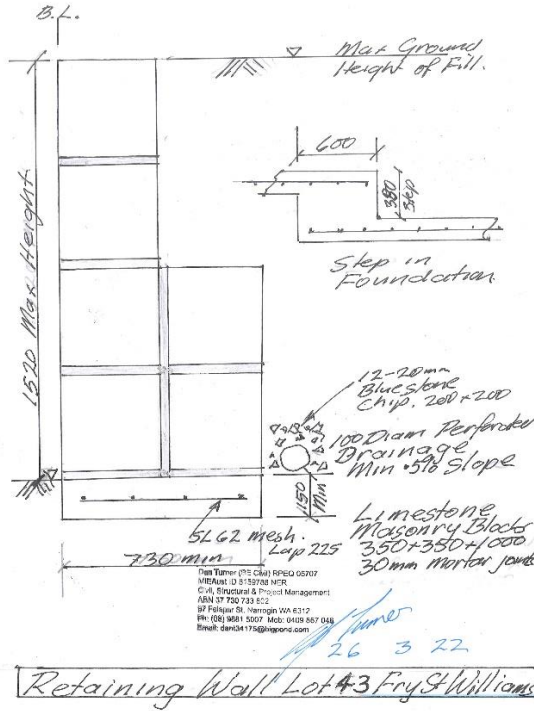 B.L.
Max Ground
Height of Fill.
600
380
Step
Step in
Foundation
1520 Max Height
12-20mm
Bluestone
Chip. 200×200
100 Diam Perforated
Drainage
Min .5% Slope
150
Min
Limestone
Masonry Blocks
350×350×1000
30mm mortar joints
SL62 mesh.
Lap 225
730 min
Dan Turner (PE Civil) RPEQ 05707
MIEAust ID NER
Civil, Structural & Project Management
ABN 37 730 733
97 Felspar St. Narrogin WA 6312
Ph: (08) 9881 5007 Mob:
Email:
Turner
26 3 22
Retaining Wall Lot 43 Fry St Williams